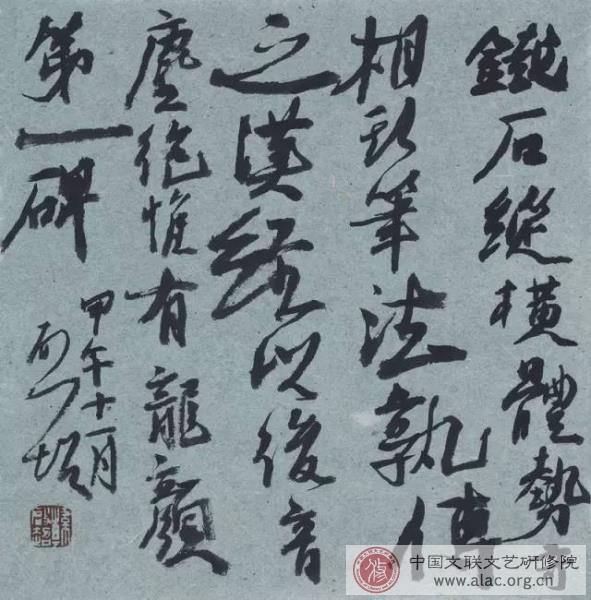 鐵石縱橫體勢奇
相斯筆法孰傳
之漢經以後音
塵絕惟有龍顏
第一碑
甲午十一月
中国文联文艺研修院
www.alac.org.cn